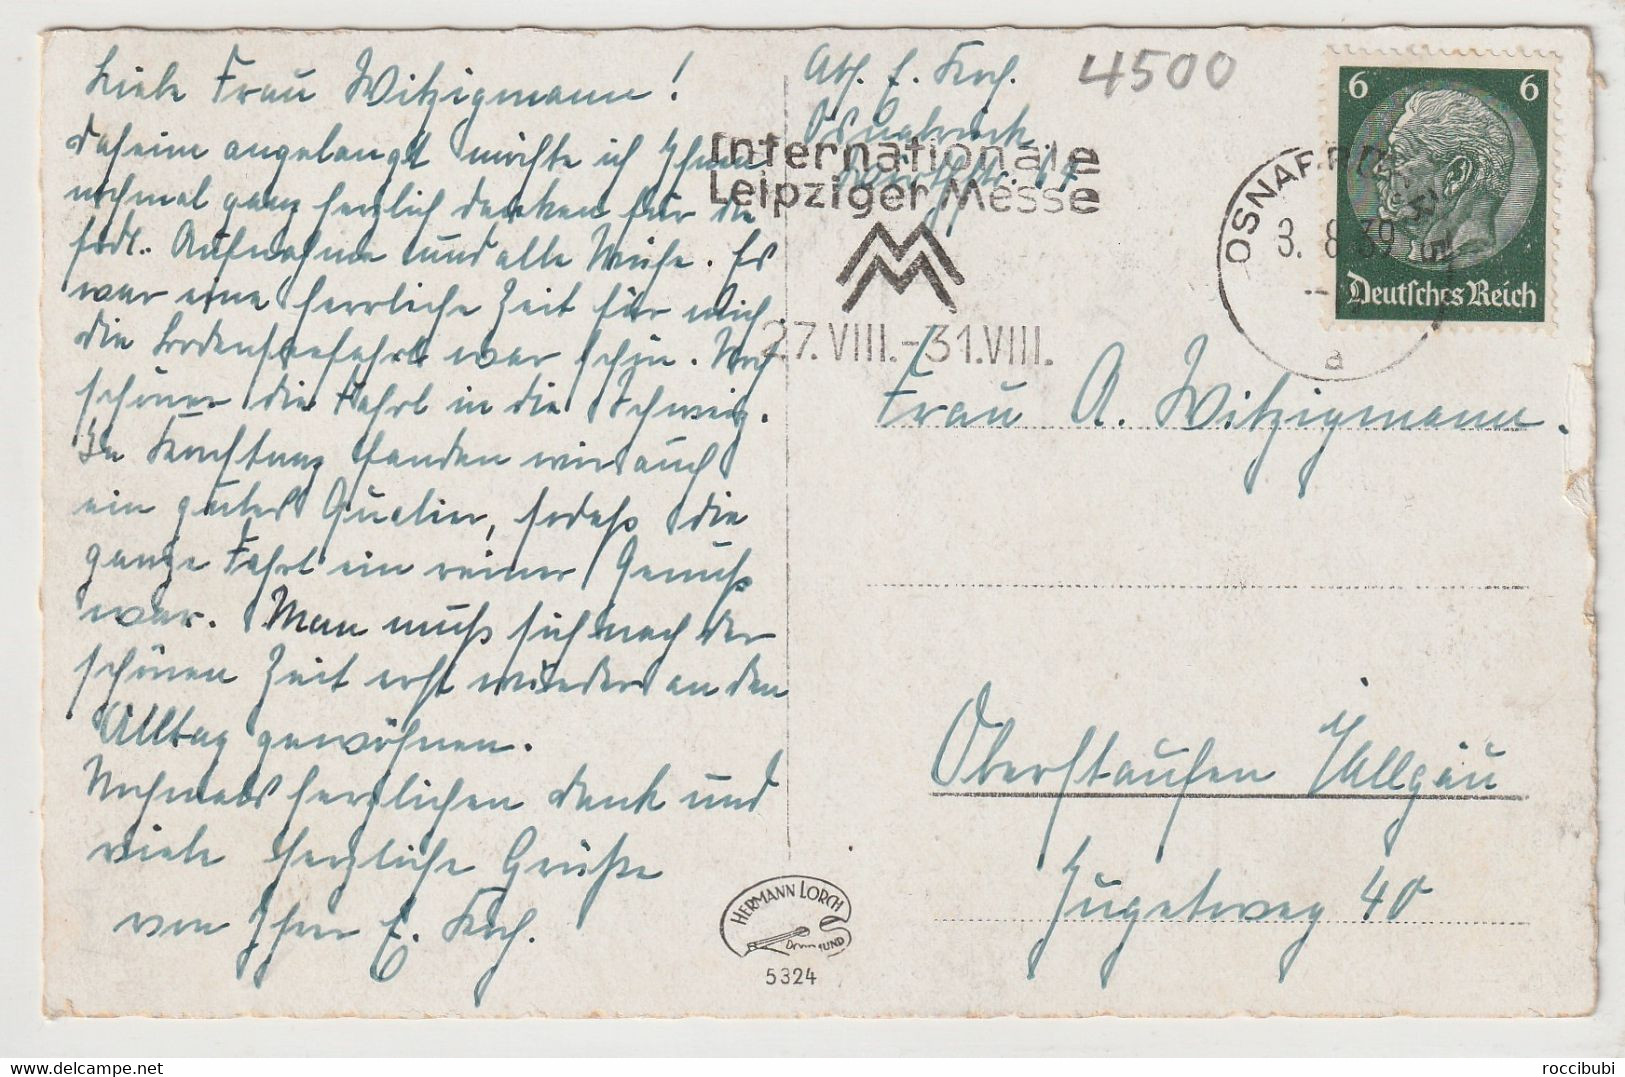 Liebe Frau Witzigmann!
Daheim angelangt möchte ich Ihnen
nochmal ganz herzlich danken für die
frdl. Aufnahme und alle Mühe. Es
war eine herrliche Zeit für mich.
die Bodenseefahrt war schön. Noch
schöner die Fahrt in die Schweiz.
In fanden wir auch
ein gutes Quartier, sodaß die
ganze Fahrt ein reiner Genuß
war. Man muß sich nach der
schönen Zeit erst wieder an den
Alltag gewöhnen.
Nochmals herzlichen Dank und
viele herzliche Grüße
von Ihrer E. Koch.
Abs. E. Koch.
Osnabrück
4500
Internationale
Leipziger Messe
27.VIII.-31.VIII.
OSNABRÜCK
3. 8. 39
a
6 6
Deutsches Reich
Frau A. Witzigmann.
Oberstaufen i/Allgäu
Hugelweg 40
HERMANN LORCH
DORTMUND
5324
roccibubi
www.delcampe.net